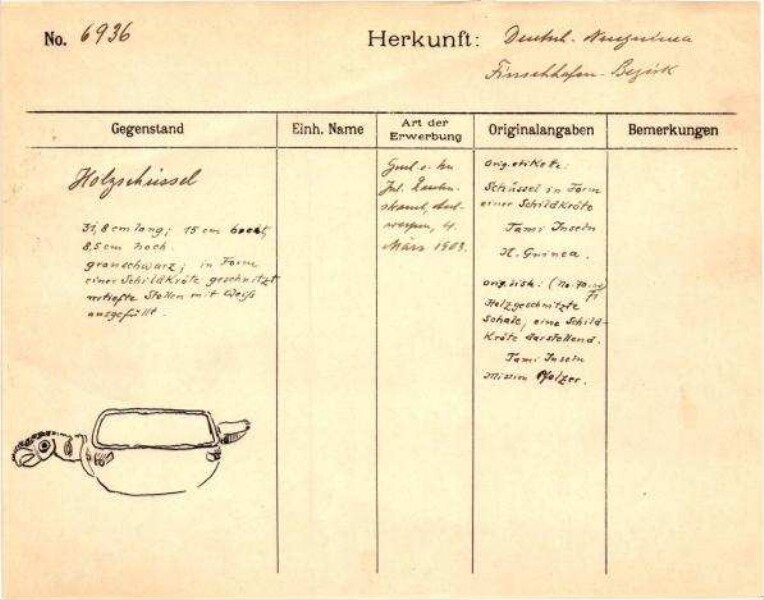 No. 6936
Herkunft: Deutsch. Neuguinea
Finschhafen-Bezirk
Gegenstand
Einh. Name
Art der
Erwerbung
Originalangaben
Bemerkungen
Holzschüssel
31,8 cm lang; 15 cm breit,
8,5 cm hoch.
grauschwarz; in Form
einer Schildkröte geschnitzt
vertiefte Stellen mit Weiß
ausgefüllt.
Jul.
werpen, 4.
März 1903.
Orig. etikette:
Schüssel in Form
einer Schildkröte
Tami Inseln
N. Guinea.
Orig. lisk: (No. 70
71
Holzgeschnitzte
Schale, eine Schild-
Kröte darstellend.
Tami Inseln
Mission Pfalzer.